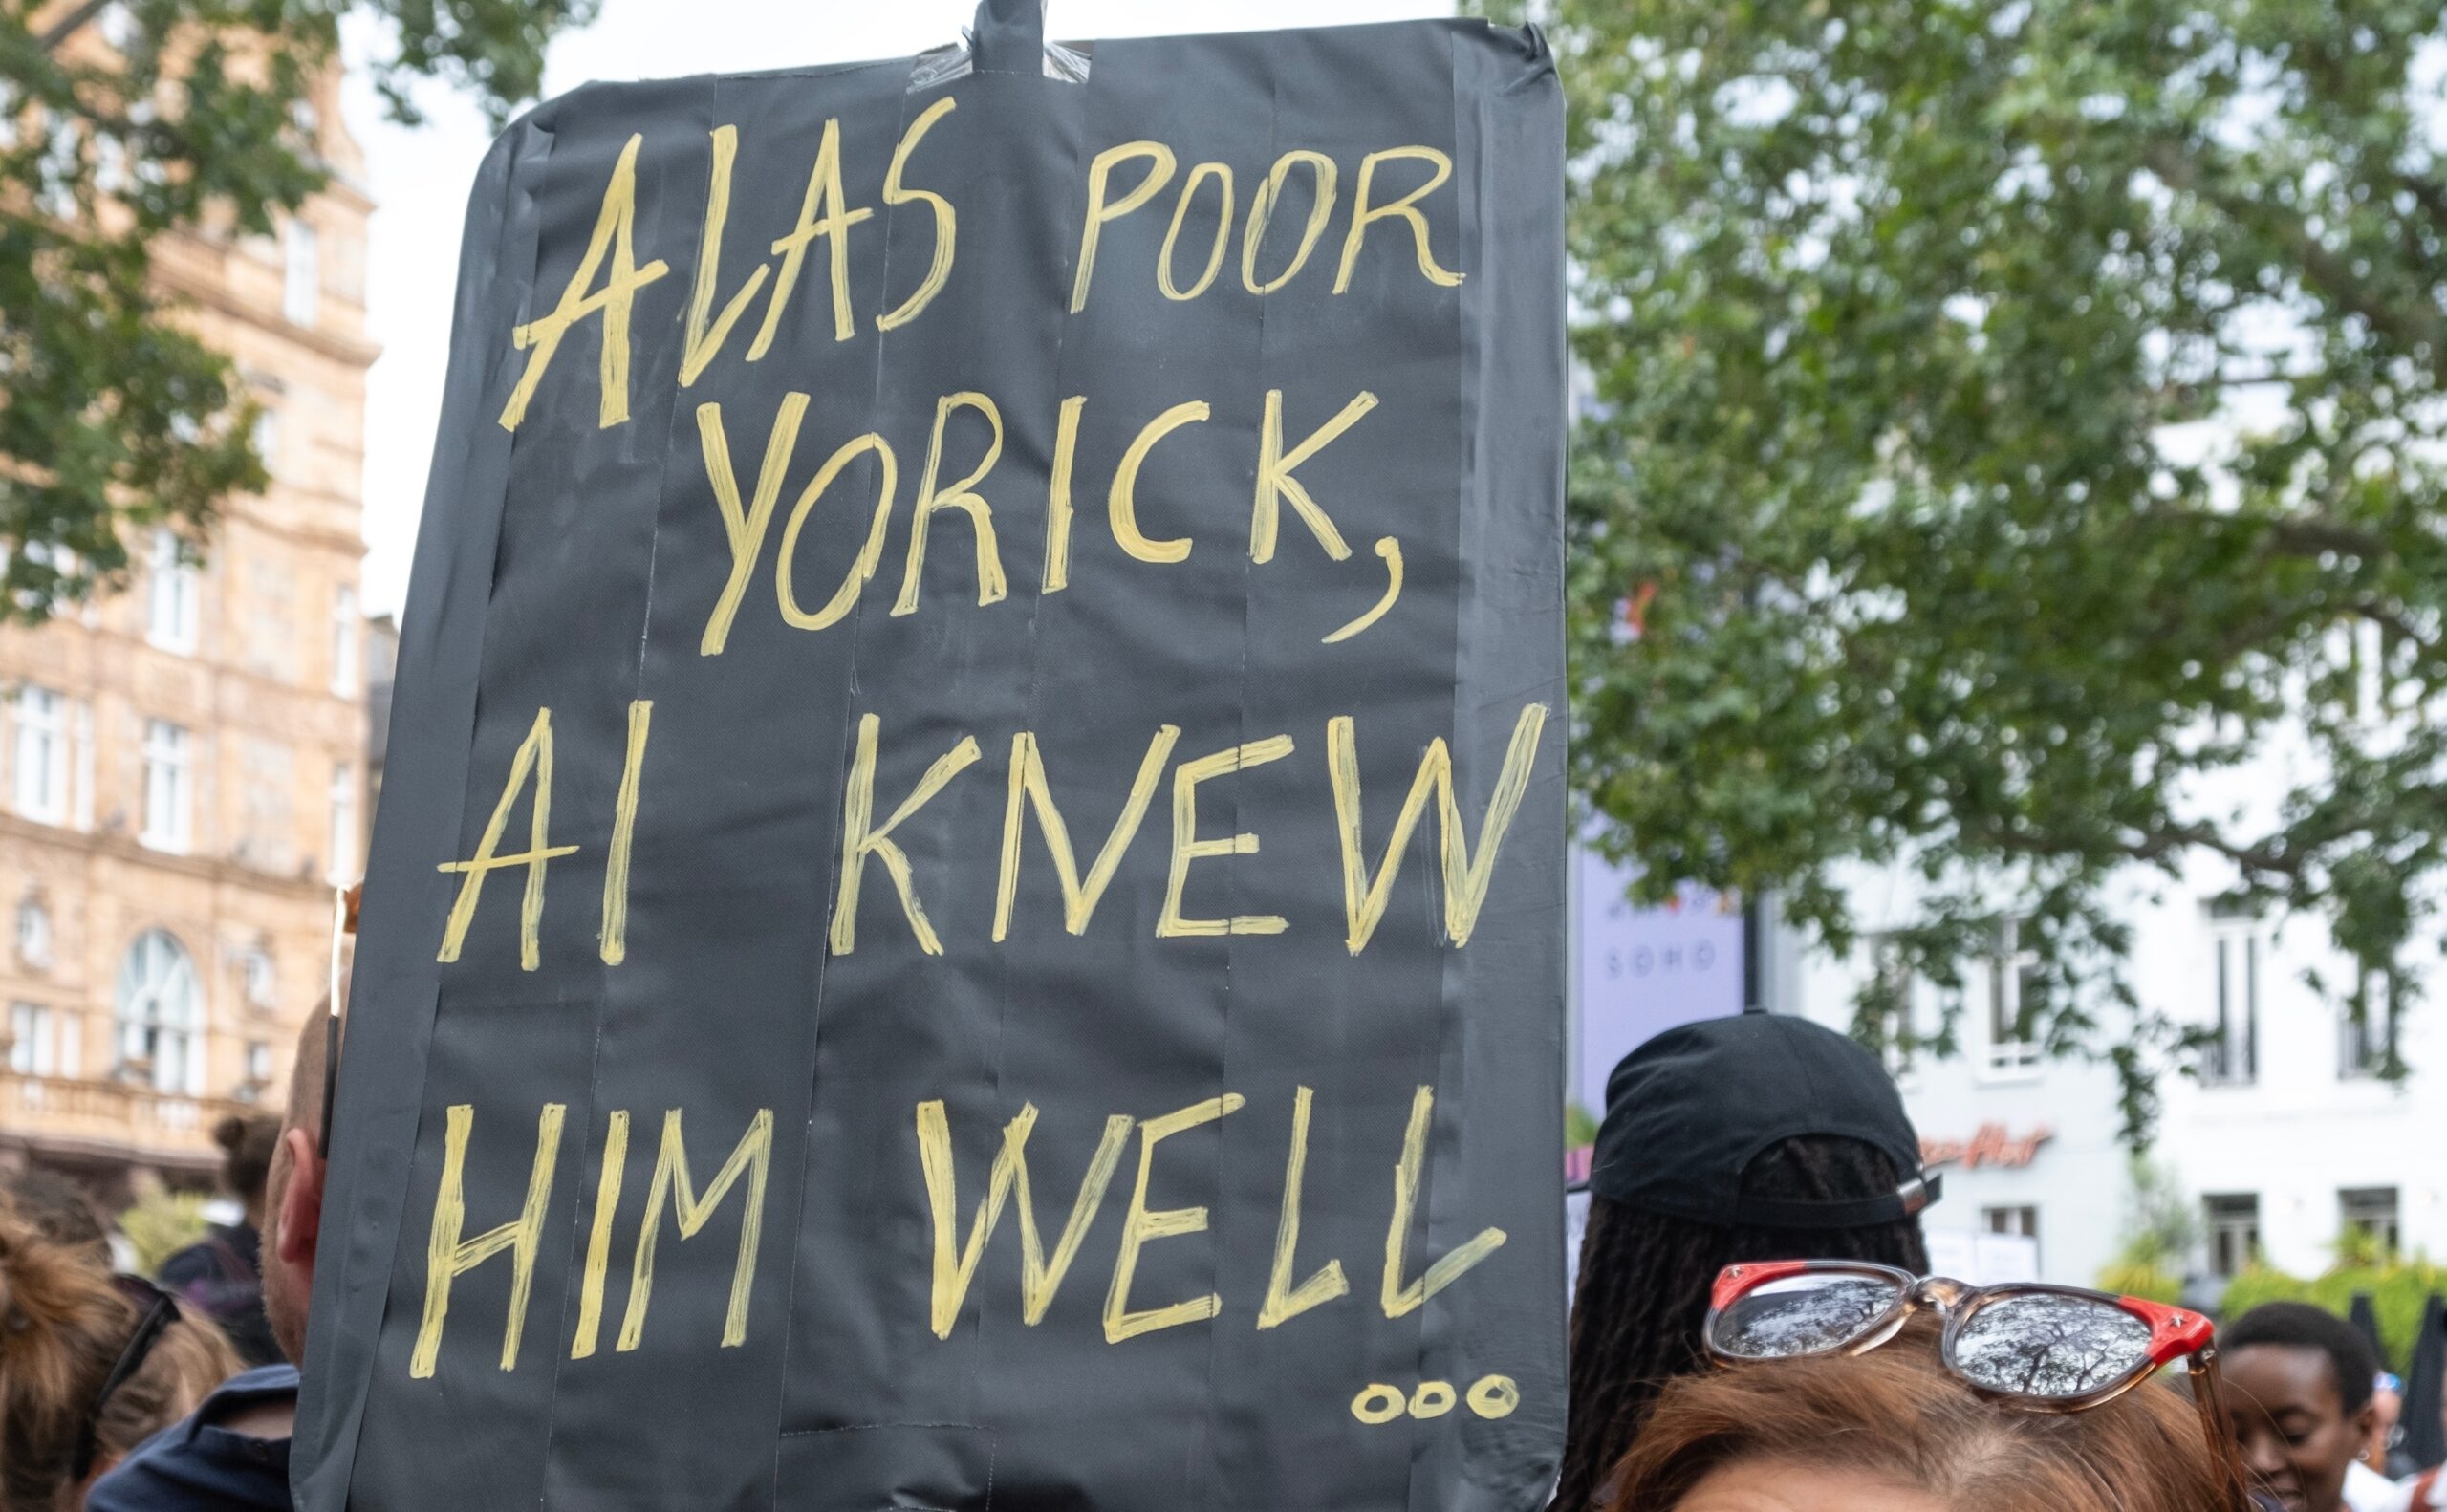 ALAS POOR
YORICK,
AI KNEW
HIM WELL
...
SOHO